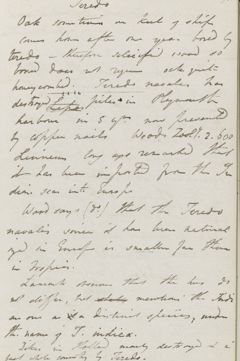 Teredo
Oak sometimes on keel of ships
comes home after one year bored by
teredo – therefore selected wood so
bored does not require quite
honeycombed... Teredo navalis has
destroyed piles in Plymouth
harbour in 5 yrs now prevented
by copper nails Wood's Zool. 2. 690
Linnaeus long ago remarked that
it has been imported from the In
dian seas into Europe
Wood says (?) that the Teredo
navalis since it has been natural
ized in Europe is smaller far than
in tropics.
Lamarck assumes that the two do
not differ, but mentions the Indi
an one as a distinct species, under
the name of T. indica.
Dikes in Holland nearly destroyed &
country by Teredo.